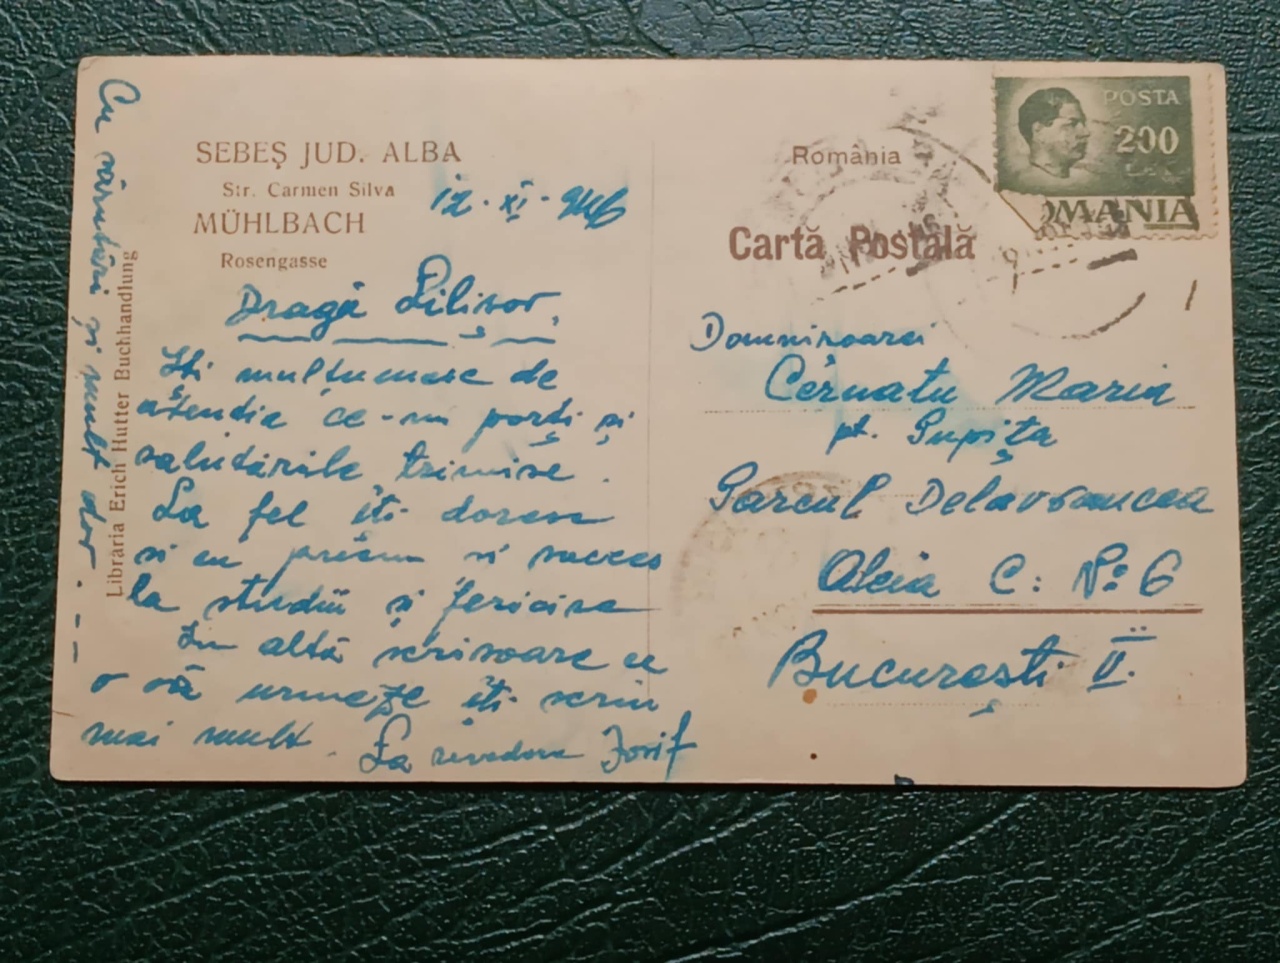 SEBEȘ JUD. ALBA
Str. Carmen Silva
MÜHLBACH
Rosengasse
12·XI·946
Dragă Lilișor,
Iți multumesc de
atenția ce-mi porți și
salutările trimise.
La fel iți doresc
și eu succes
la studii și fericire
In altă scrisoare ce
o să urmeze iți scriu
mai mult. La revedere Iosif
Cu sărutări și mult dor. — —
Librăria Erich Hutter Buchhandlung
România
Cartă Postală
POSTA
200
LEI
OMANIA
Domnișoarei
Cernatu Maria
pt. Pupița
Parcul Delavrancea
Aleia C: No 6
București II.